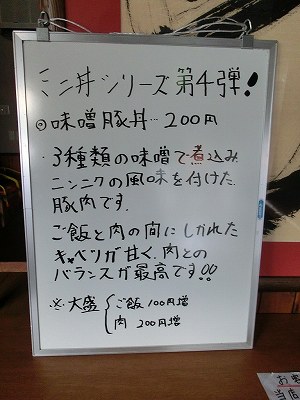 ミニ丼シリーズ第4弾!
◎味噌豚丼…200円
・3種類の味噌で煮込み
ニンニクの風味を付けた
豚肉です.
ご飯と肉の間にしかれた
キャベツが甘く、肉との
バランスが最高です!!
※大盛 { ご飯 100円増
肉 200円増
お
当店